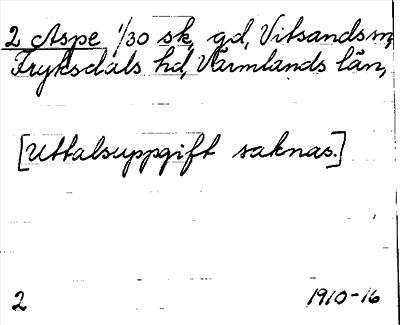 2 Aspe 1/30 sk, gd, Vitsands sn,
Fryksdals hd, Värmlands län,
[Uttalsuppgift saknas.]
2 1910-16